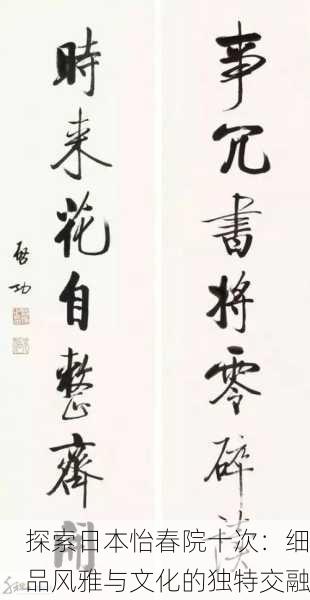 事冗書將零碎讀
時來花自整齊開
啓功
探索日本怡春院十次：细
品风雅与文化的独特交融